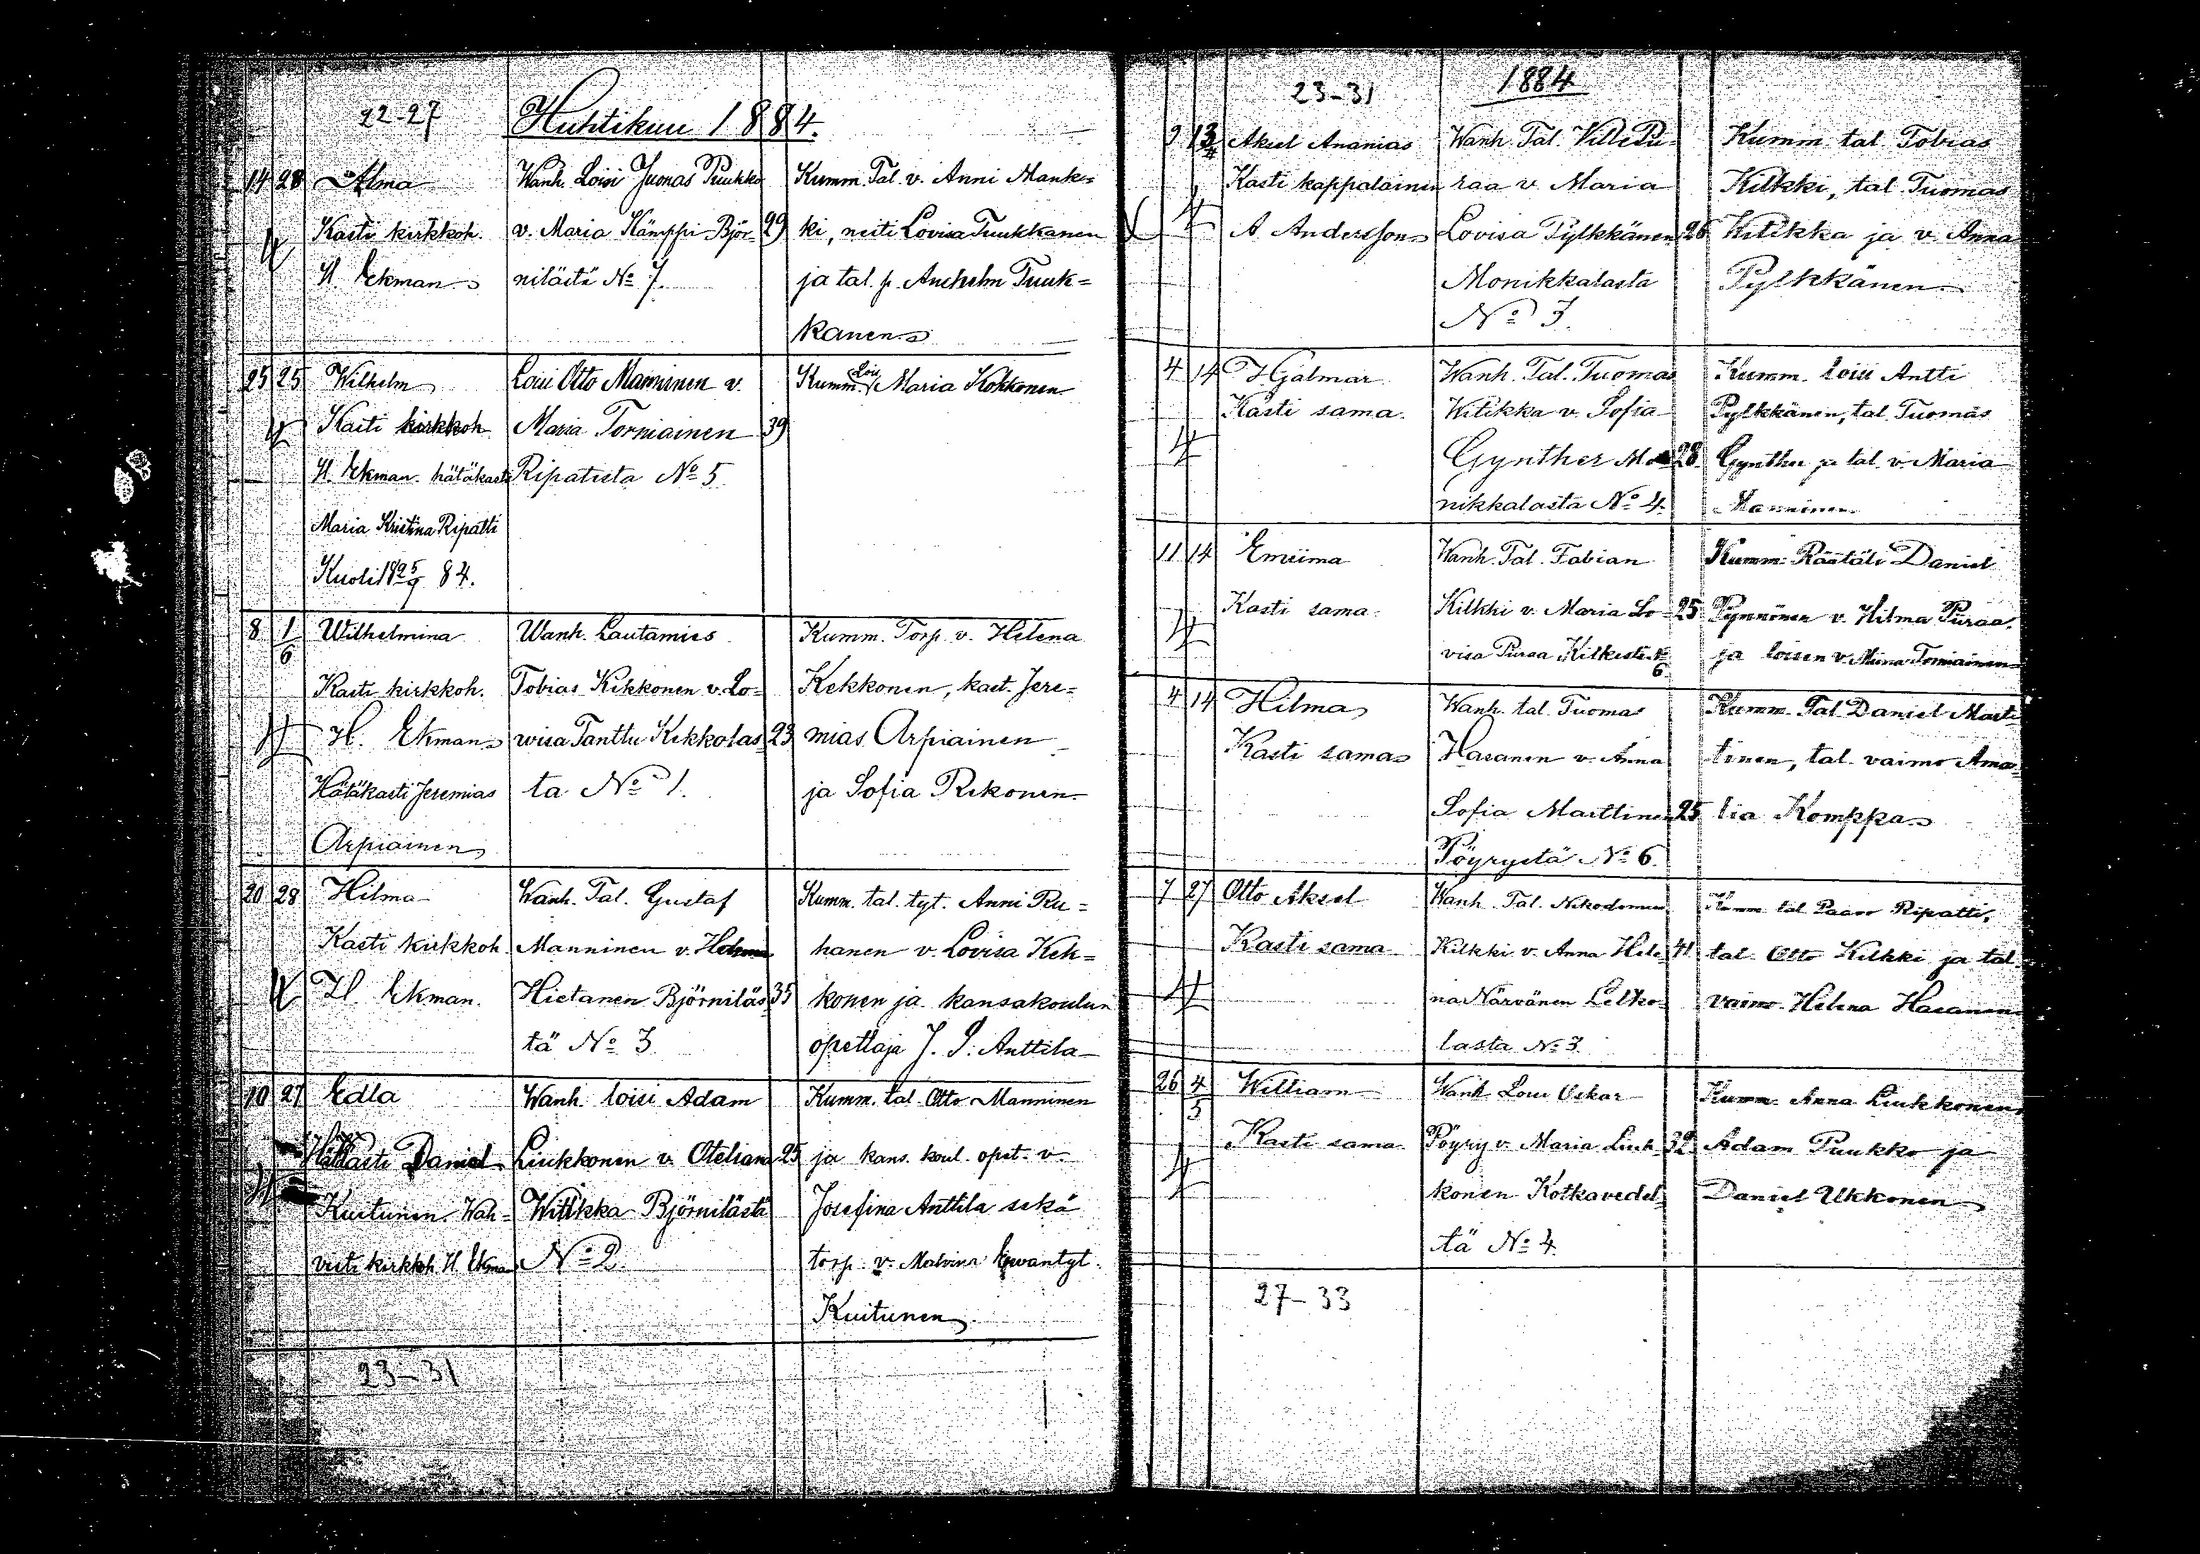 22-27
Huhtikuu 1884.
14 28 Alma
Kasti kirkkoh.
H. Ekman
Wanh. Loisi Juonas Puukko
v. Maria Kämppi Björ- 29
nilästä No 7.
Kumm. Tal. v. Anni Mank=
ki, neiti Lovisa Tuukkanen
ja tal. p. Anshelm Tuuk=
kanen
25 25 Wilhelm
Kasti kirkkoh
H. Ekman. hätäkasti
Maria Kristina Ripatti
Kuoli 18 25/9 84.
Loisi Otto Manninen v.
Maria Torniainen 39
Ripatista No 5
Kumm. Loi. Maria Kokkonen
8 1/6 Wilhelmina
Kasti kirkkoh.
H. Ekman
Hätäkasti Jeremias
Arpiainen
Wanh. Lautamies
Tobias Kekkonen v. Lo=
wisa Tanttu Kekkolas 23
ta No 1.
Kumm. Torp. v. Helena
Kekkonen, kast. Jere=
mias Arpiainen
ja Sofia Rikonen
20 28 Hilma
Kasti kirkkoh
H. Ekman.
Wanh. Tal. Gustaf
Manninen v. Helena
Hietanen Björniläs 35
tä No 3.
Kumm. tal. tyt. Anni Ru=
hanen v. Lovisa Kek=
konen ja kansakoulun
opettaja J. P. Anttila
10 27 Edla
Hätäkasti Daniel
Kuitunen Wah-
visti kirkkoh. H. Ekman
Wanh loisi Adam
Liukkonen v. Oteliana 25
Witikka Björnilästä
No 2.
Kumm. tal. Otto Manninen
ja kans. koul. opet. v.
Josefina Anttila sekä
torp. v. Malvina Hywäntyt.
Kuitunen
23-31
23-31
1884
9 13/4 Aksel Ananias
Kasti kappalainen
A Andersson
Wanh. Tal. Ville Pu-
raa v. Maria
Lovisa Pylkkänen 26
Monikkalasta
No 3.
Kumm. tal. Tobias
Kilkki, tal. Tuomas
Witikka ja v. Anna
Pylkkänen
4 14 Hjalmar
Kasti sama.
Wanh. Tal. Tuomas
Witikka v. Sofia
Gynther Mo 28
nikkalasta No 4.
Kumm. loisi Antti
Pylkkänen, tal. Tuomas
Gynther ja tal. v. Maria
Manninen
11 14 Emiima
Kasti sama.
Wanh. Tal. Fabian
Kilkki v. Maria Lo- 25
visa Puraa Kilkistä No
6.
Kumm. Räätäli Daniel
Pymnönen v. Hilma Puraa
ja loisen v. Miina Torniainen
4 14 Hilma
Kasti sama
Wanh. tal. Tuomas
Hasanen v. Anna
Sofia Marttinen 25
Pöyrystä No 6.
Kumm. Tal. Daniel Mart
tinen, tal. vaimo Ama-
lia Komppa
7 27 Otto Aksel
Kasti sama
Wanh. Tal. Nikodemus
Kilkki v. Anna Hele- 41
na Närvänen Lelko-
lasta No 3
Kumm. tal. Paavo Ripatti,
tal. Otto Kilkki ja tal.
vaimo Helena Hasanen
26 4/5 William
Kasti sama
Wanh. Loisi Oskar
Pöyry v. Maria Liuk- 32
konen Kotkavedel-
tä No 4.
Kumm. Anna Liukkonen
Adam Puukko ja
Daniel Ukkonen
27-33